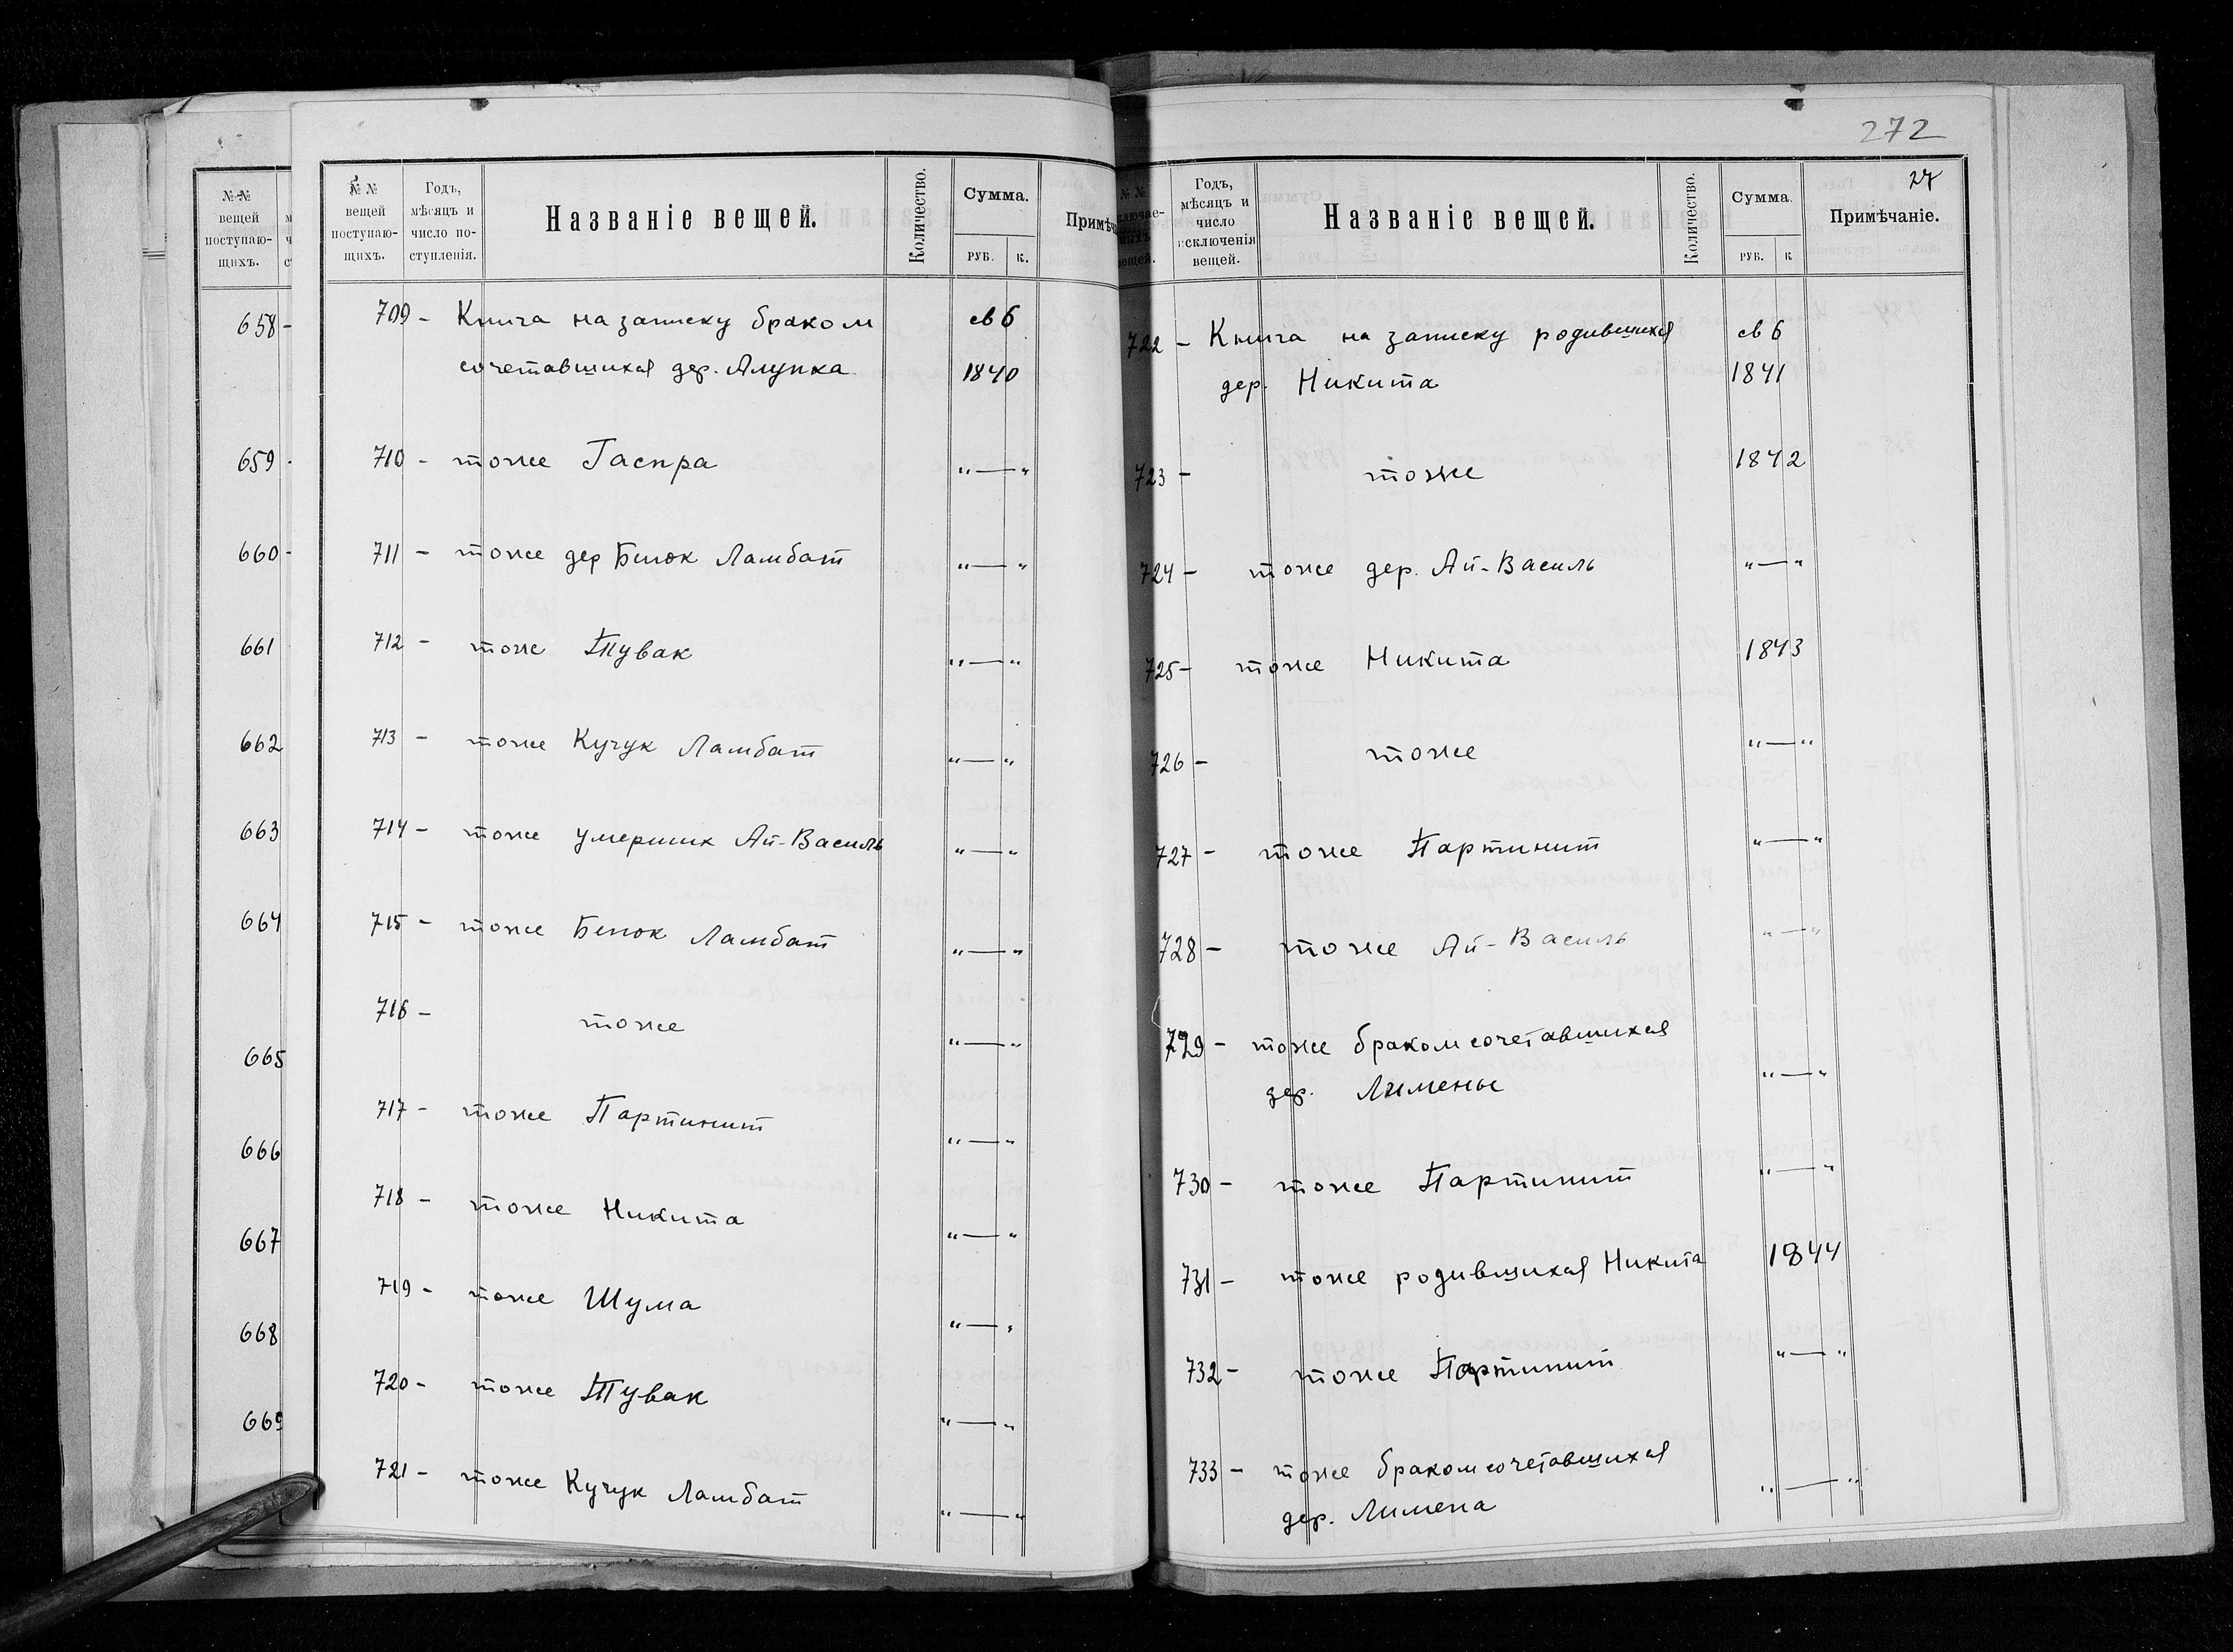 272
27
№№
вещей
поступаю-
щихъ.
658 -
659 -
660 -
661
662
663
664
665
666
667
668
669
№ №
вещей
поступаю-
щихъ.
Годъ,
мѣсяцъ и
число по-
ступленія.
Названіе вещей.
Количество.
Сумма.
РУБ.
К.
Примѣч
709 - Книга на записку браком св 6
сочетавшихся дер. Алупка 1840
710 - тоже Гаспра "—"
711 - тоже дер Биюк Ламбат "—"
712 - тоже Тувак "—"
713 - тоже Кучук Ламбат "—"
714 - тоже умерших Ай-Василь "—"
715 - тоже Биюк Ламбат "—"
716 - тоже "—"
717 - тоже Партинит "—"
718 - тоже Никита "—"
719 - тоже Шума "—"
720 - тоже Тувак "—"
721 - тоже Кучук Ламбат "—"
№ №
вещей.
Годъ,
мѣсяцъ и
число
исключенія
вещей.
Названіе вещей.
Количество.
Сумма.
РУБ.
К
Примѣчаніе.
722 - Книга на записку родившихся св 6
дер. Никита 1841
723 - тоже 1842
724 - тоже дер. Ай-Василь "—"
725 - тоже Никита 1843
726 - тоже "—"
727 - тоже Партинит "—"
728 - тоже Ай-Василь "—"
729 - тоже браком сочетавшихся
дер. Лимены "—"
730 - тоже Партинит "—"
731 - тоже родившихся Никита 1844
732 - тоже Партинит "—"
733 - тоже браком сочетавшихся
дер. Лимена "—"